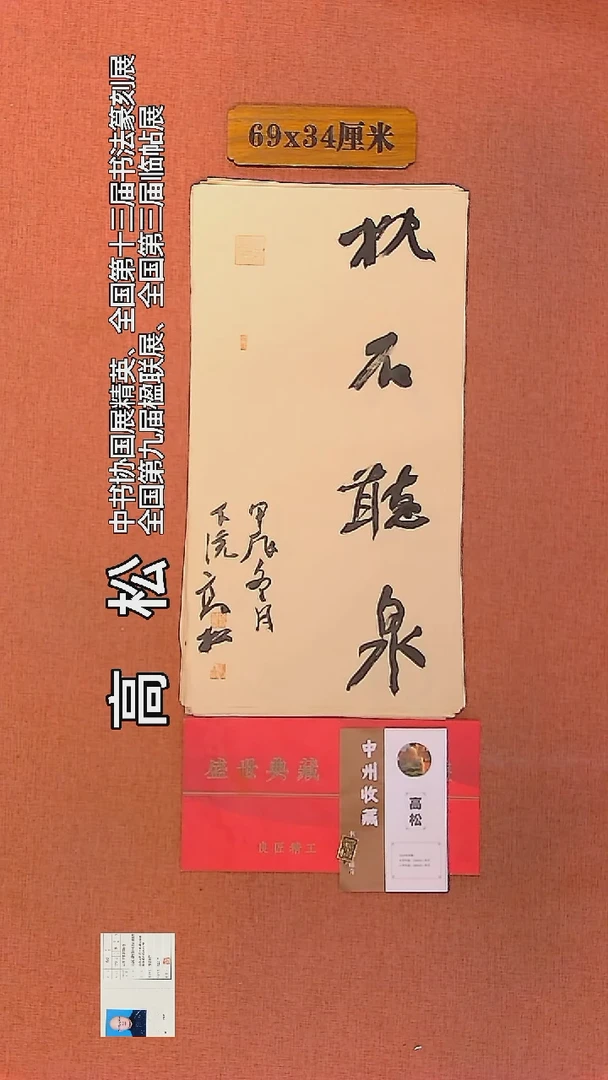 69x34厘米
枕石聽泉
甲辰冬月
下浣高松
高 松
中书协国展精英、全国第十三届书法篆刻展
全国第九届楹联展、全国第三届临帖展
盛世典藏
良匠精工
中州收藏
高松